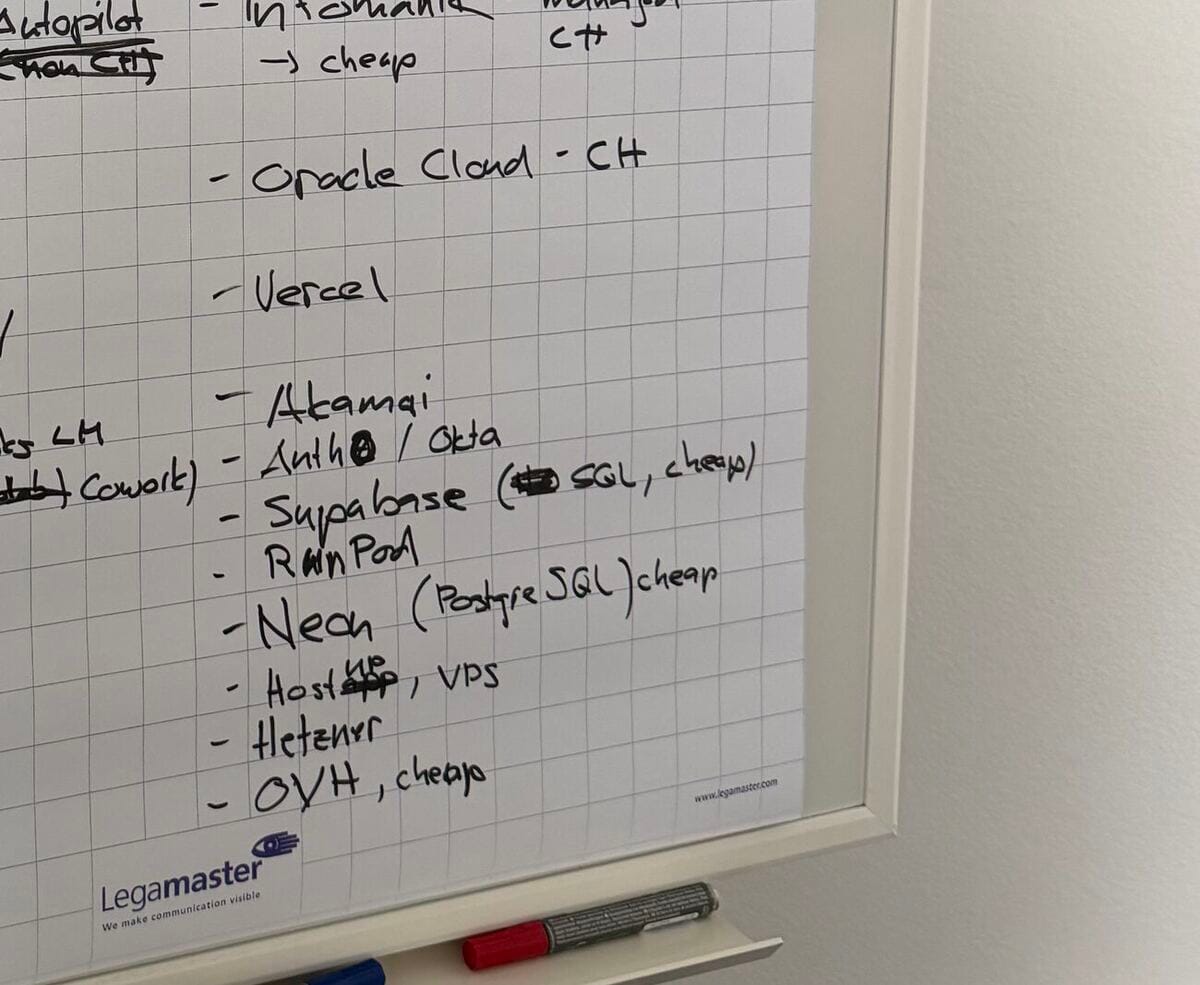 Autopilot
(non CH)
- Infomaniak
→ cheap
CH
- Oracle Cloud - CH
- Vercel
LM
Cowork)
- Akamai
- Auth0 / Okta
- Supabase ( SQL, cheap)
- RunPod
- Neon (PostgreSQL) cheap
- Hostup, VPS
- Hetzner
- OVH, cheap
www.legamaster.com
Legamaster
We make communication visible